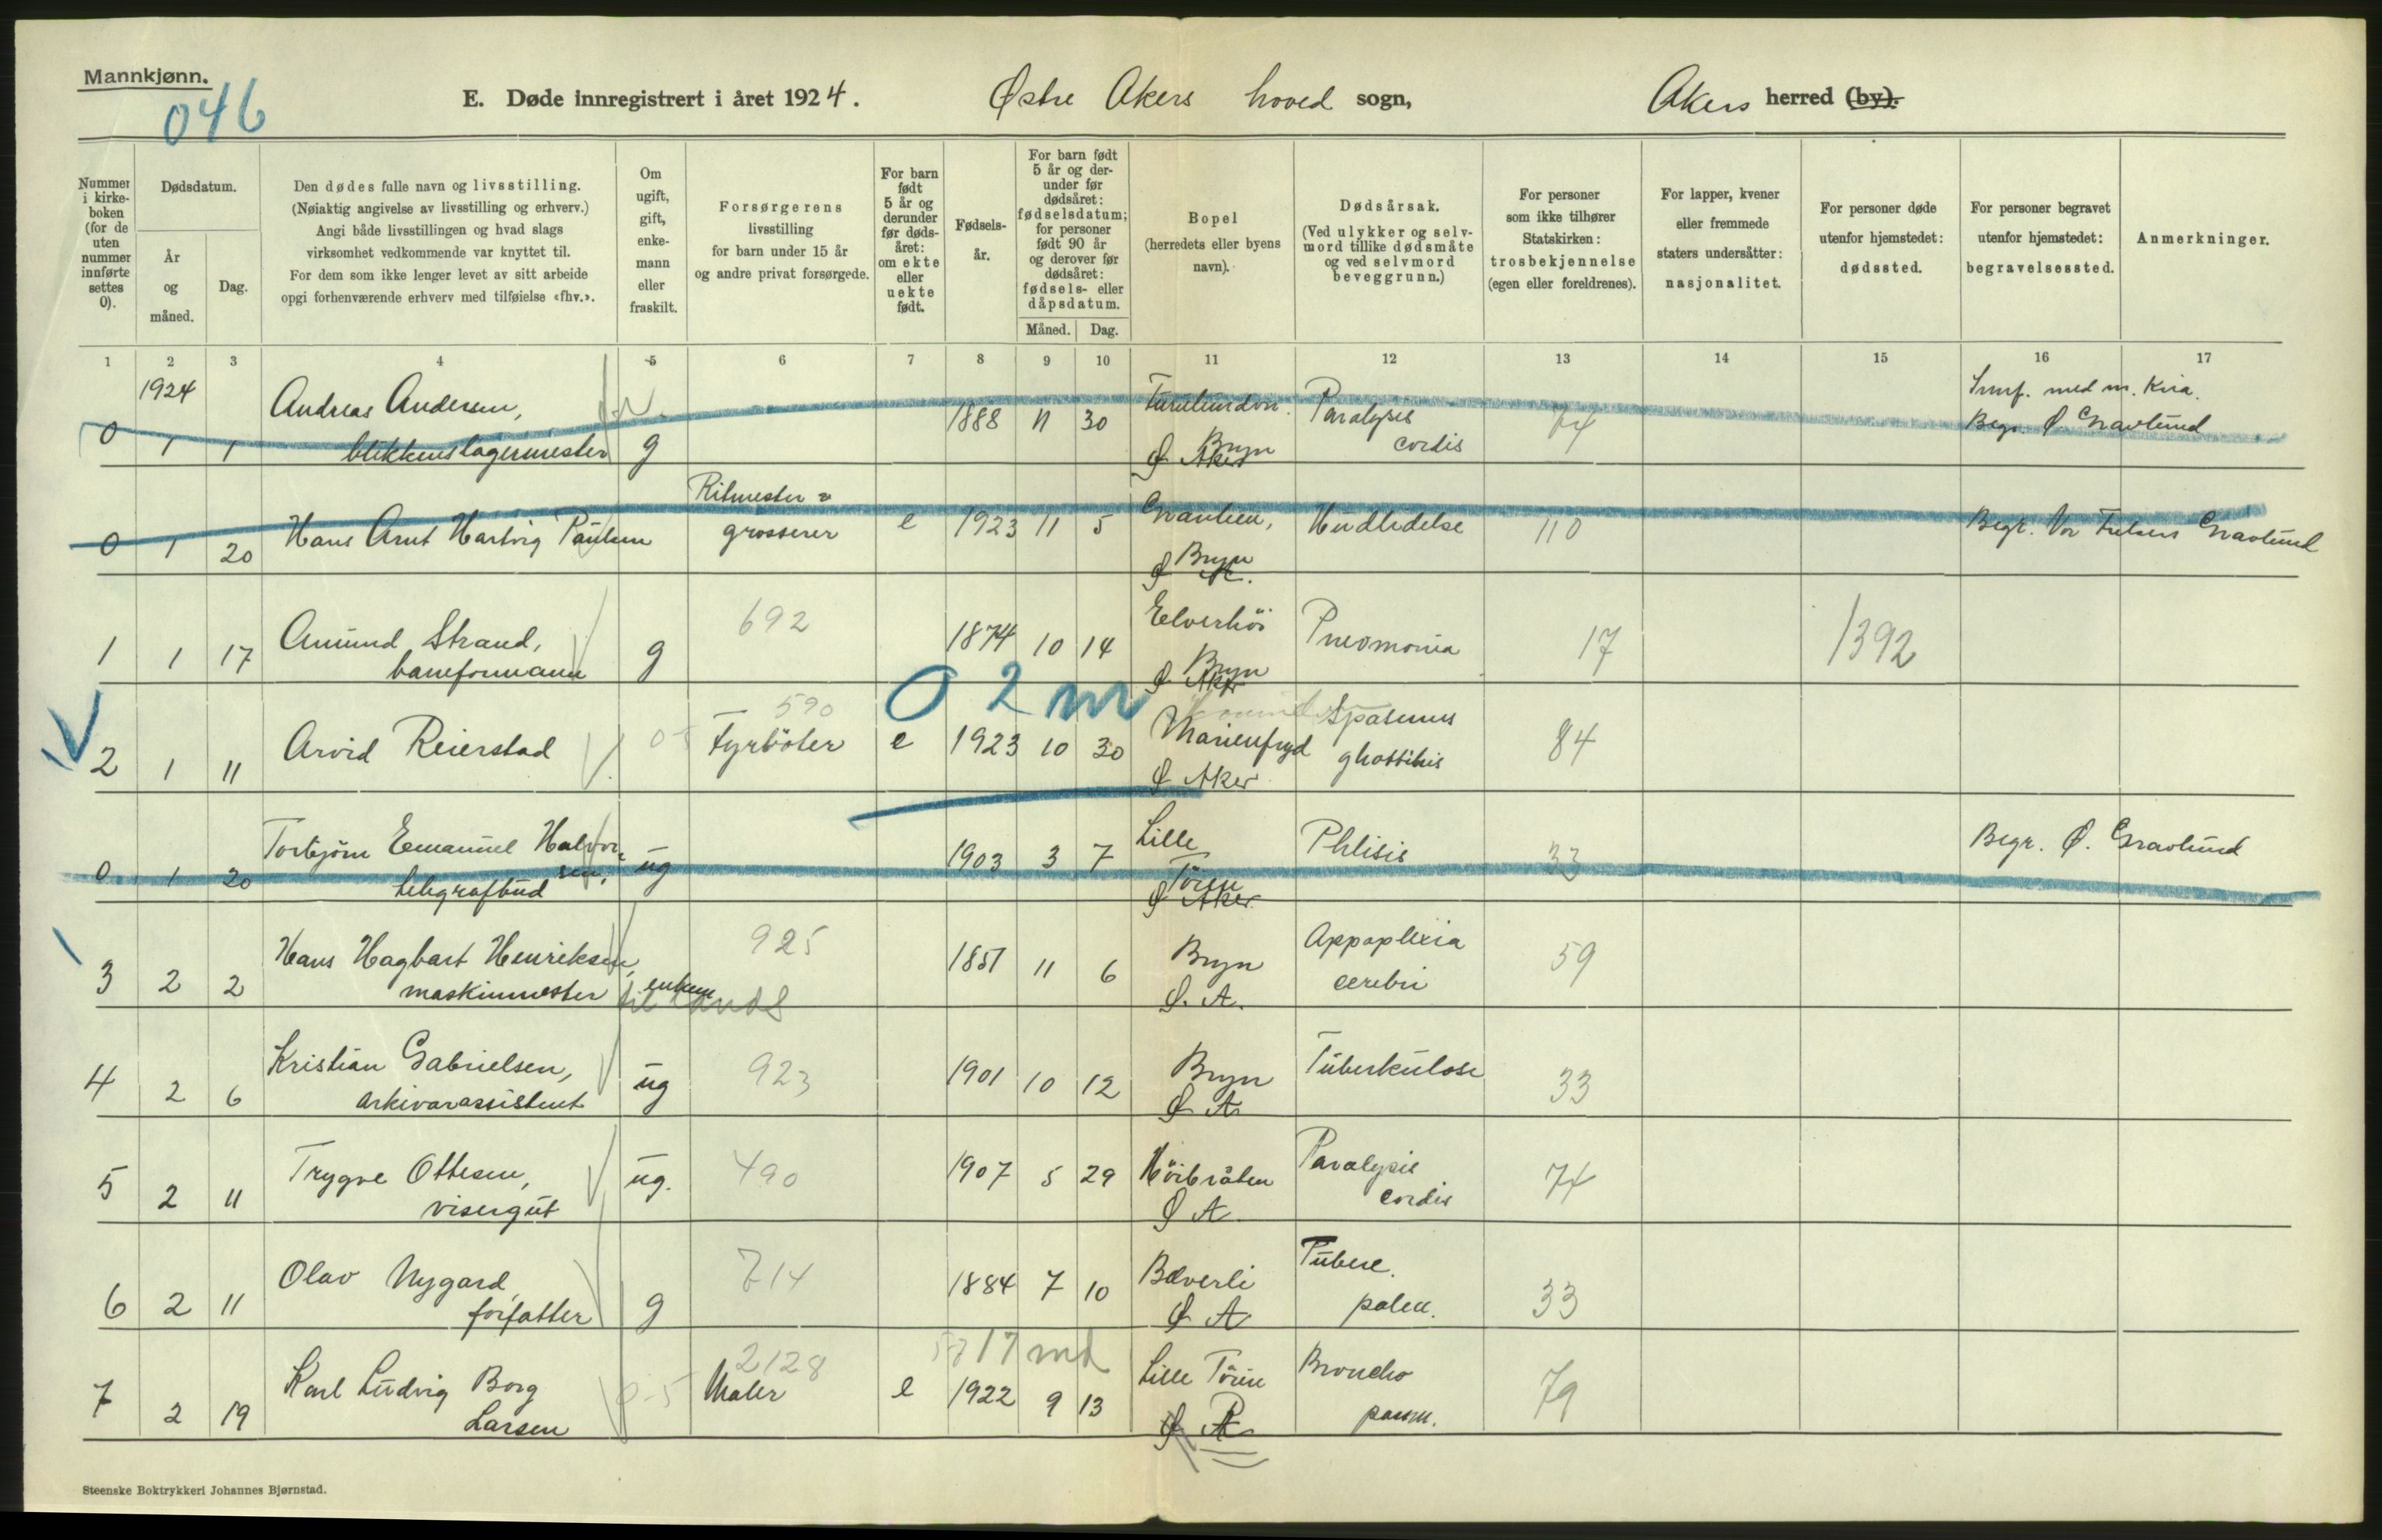 Mannkjønn.
046
E. Døde innregistrert i året 1924. Østre Akers hoved sogn, Akers herred (by).
Nummer i kirkeboken (for de uten nummer innførte settes 0).
Dødsdatum.
År og måned.
Dag.
Den dødes fulle navn og livsstilling.
(Nøiaktig angivelse av livsstilling og erhverv.)
Angi både livsstillingen og hvad slags
virksomhet vedkommende var knyttet til.
For dem som ikke lenger levet av sitt arbeide
opgi forhenværende erhverv med tilføielse «fhv.».
Om ugift, gift, enkemann eller fraskilt.
Forsørgerens
livsstilling
for barn under 15 år
og andre privat forsørgede.
For barn født 5 år og derunder før dødsåret: om ekte eller uekte født.
Fødselsår.
For barn født 5 år og derunder før dødsåret: fødselsdatum; for personer født 90 år og derover før dødsåret: fødsels- eller dåpsdatum.
Måned. Dag.
Bopel
(herredets eller byens
navn).
Dødsårsak.
(Ved ulykker og selvmord tillike dødsmåte og ved selvmord beveggrunn.)
For personer
som ikke tilhører
Statskirken:
trosbekjennelse
(egen eller foreldrenes).
For lapper, kvener
eller fremmede
staters undersåtter:
nasjonalitet.
For personer døde
utenfor hjemstedet:
dødssted.
For personer begravet
utenfor hjemstedet:
begravelsessted.
Anmerkninger.
1 2 3 4 5 6 7 8 9 10 11 12 13 14 15 16 17
1924
0 1 1 Andreas Andersen, 1888 11 30 Paralysis 74
blikkenslagermester g Bryn cordis Begr. Ø. Gravlund
Ø Aker
Ritmester =
0 1 20 Hans Arnt Hartvig Paulsen grosserer e 1923 11 5 Granlien, Hudlidelse 110 Begr. Vor Frelsers Gravlund
Bryn
Ø A.
1 1 17 Amund Strand, 692 1874 10 14 Elverhöi Pneomonia 17 1392
baneformann g Bryn
Ø Aker
02m
590
2 1 11 Arvid Reierstad 0-5 Fyrböter e 1923 10 30 Marienfryd Spasmus 84
Ø Aker ghottihis
0 1 20 Torbjörn Emanuel Halvor= ug 1903 3 7 Lille Phtisis 33 Begr. Ø. Gravlund
sen, telegrafbud Töien
Ø Aker
3 2 2 Hans Hagbart Henriksen, 925 1851 11 6 Bryn Appoplexia 59
maskinmester enkem Ø. A. cerebri
til lands
4 2 6 Kristian Gabrielsen, ug 923 1901 10 12 Bryn Tuberkulose 33
arkivarassistent Ø A
5 2 11 Trygve Ottesen, ug. 490 1907 5 29 Höibråten Paralysis 74
visergut Ø A cordis
6 2 11 Olav Nygard, 714 1884 7 10 Bæverli Tuberc. 33
forfatter g Ø A
17 md
2128
7 2 19 Karl Ludvig Borg 0-5 Maler e 1922 9 13 Lille Töien Broncho 79
Larsen Ø A
Steenske Boktrykkeri Johannes Bjørnstad.